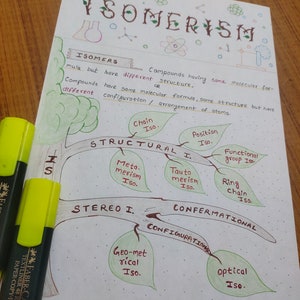 ISOMERISM
ISOMERS
Compounds having same molecular for-
mula but have different structure.
or
Compounds have same molecular formula, same structure but have
different configuration / arrangement of atoms.
Chain
Iso.
Position
Iso.
Functional
group Iso.
STRUCTURAL I.
Meta.
merism
Iso.
Tauto
merism
Iso.
Ring
chain
Iso.
IS
STEREO I.
CONFERMATIONAL
CONFIGURATIONAL
Geo-met
rical
Iso.
Optical
Iso.
FABER-CASTELL
TEXTLINER